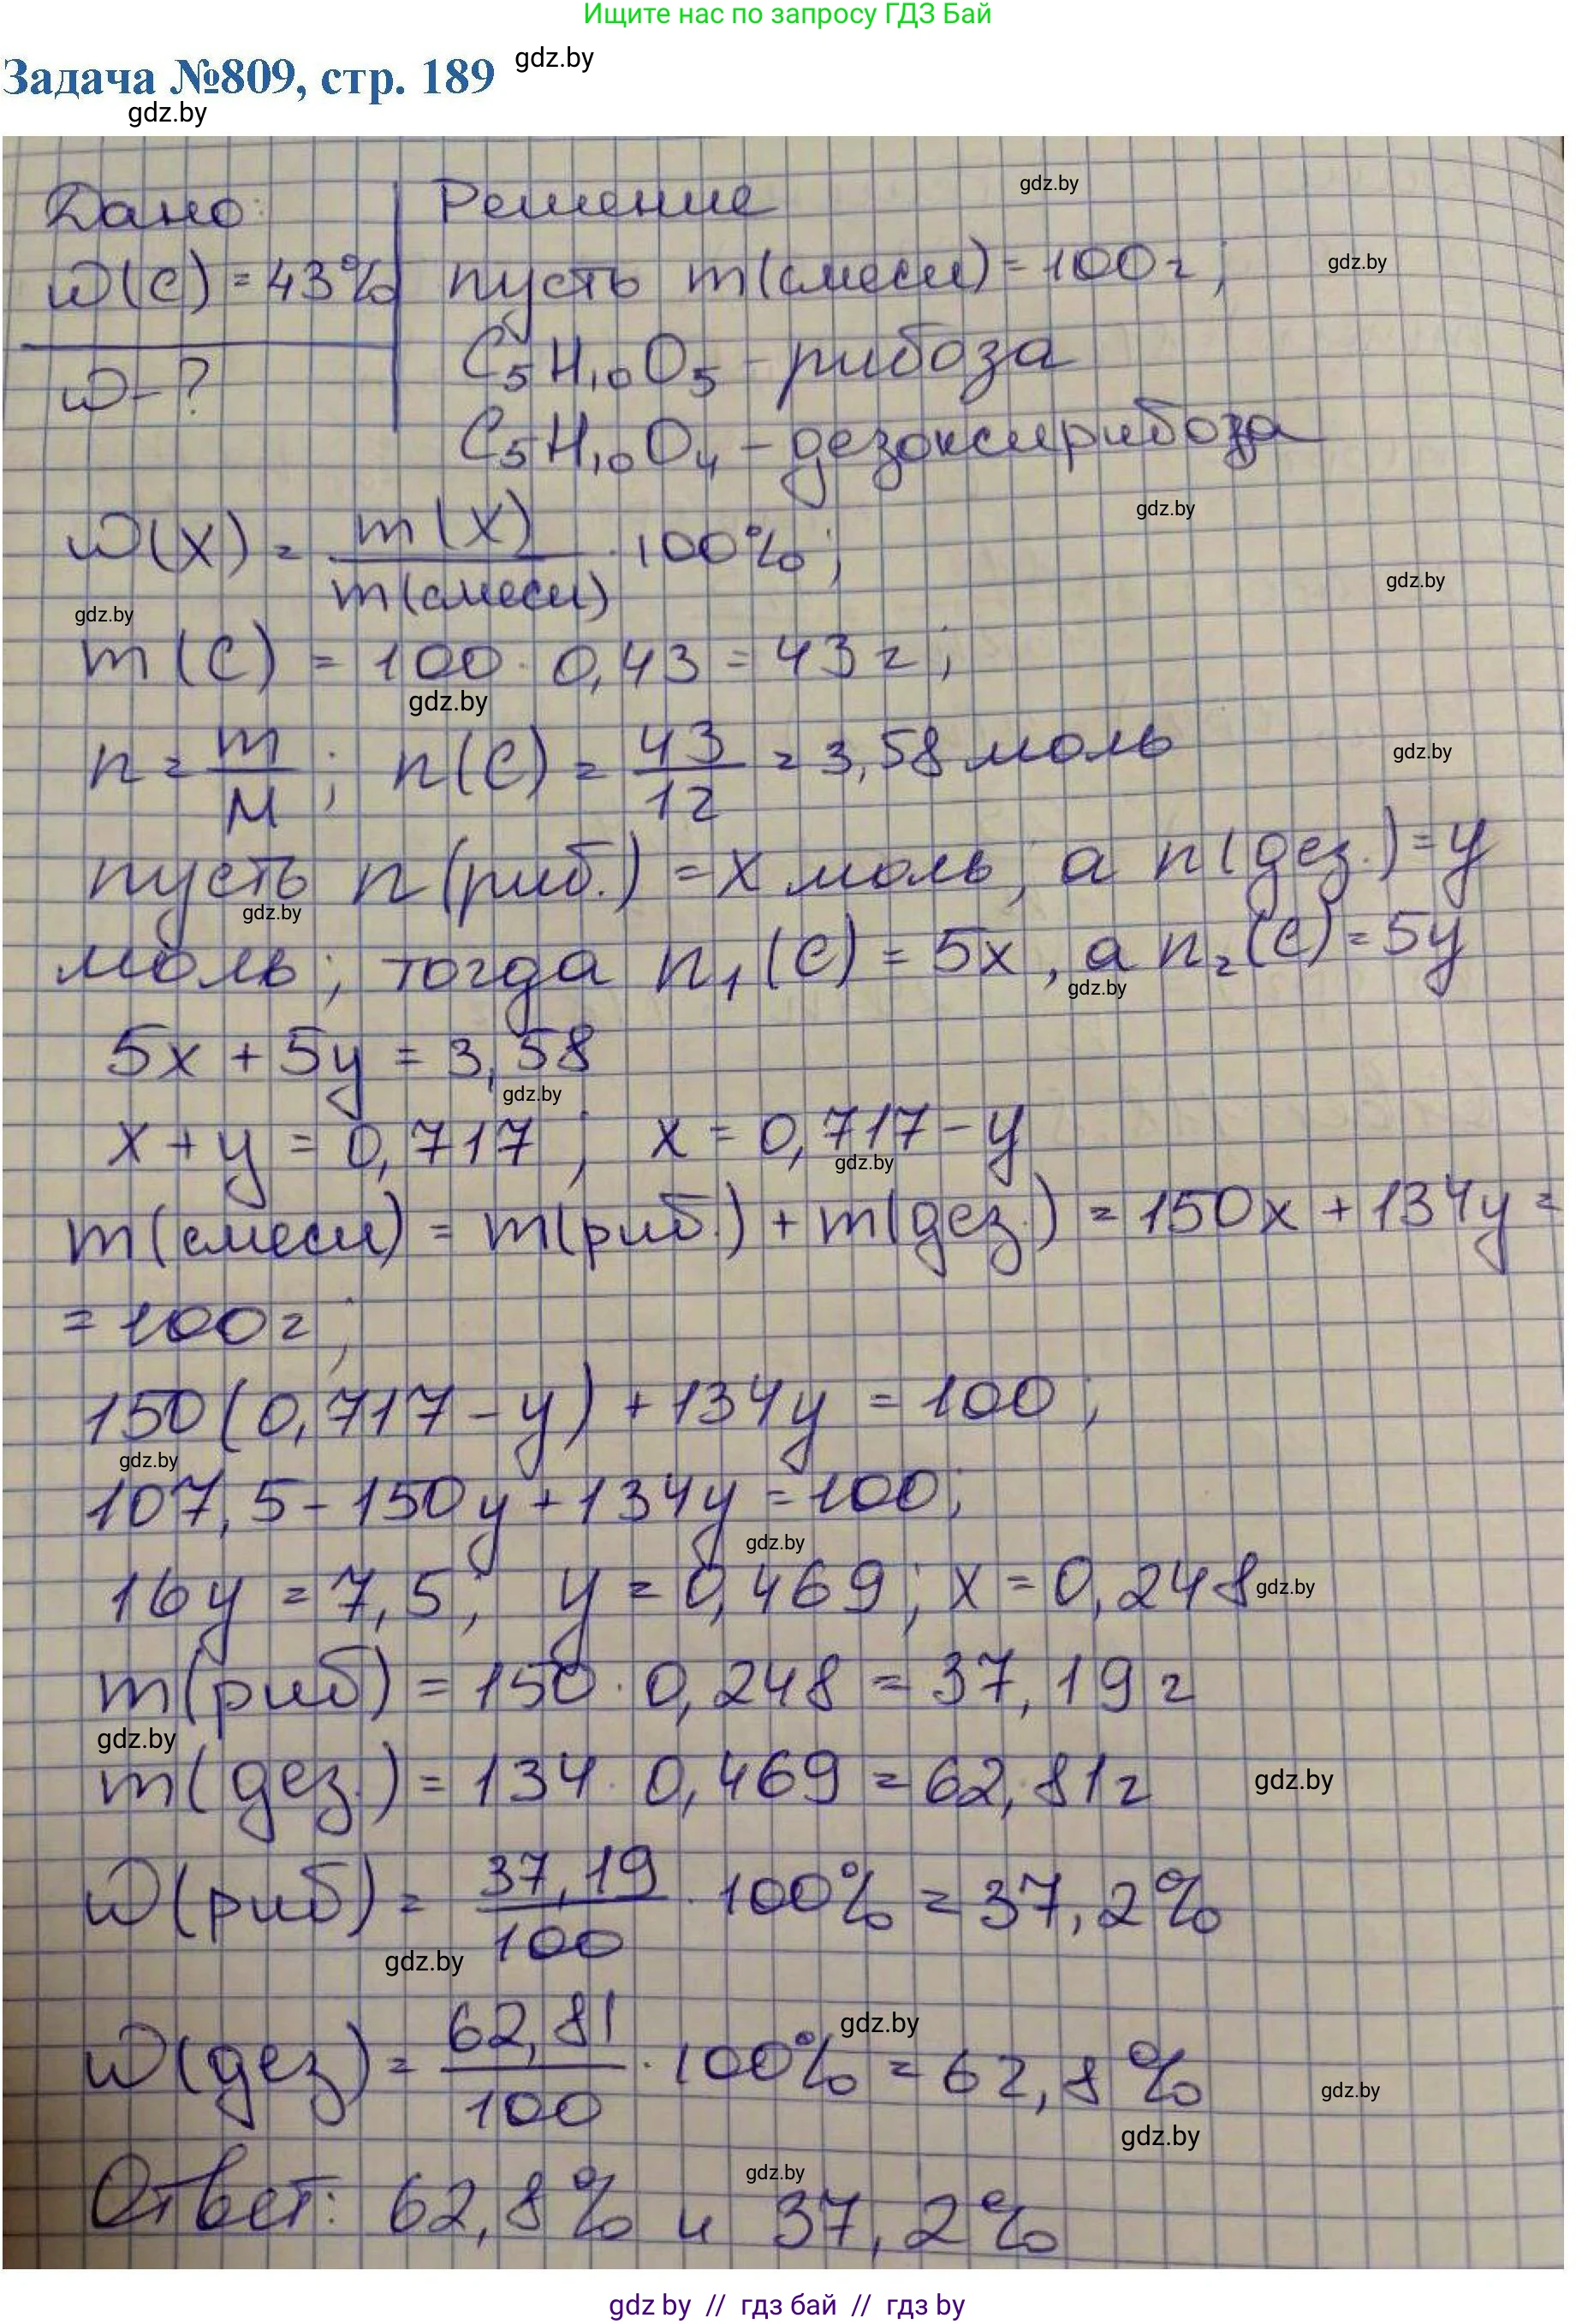 Ищите нас по запросу ГДЗ Бай
Задача №809, стр. 189 gdz.by
gdz.by
Дано: Решение gdz.by
w(C) = 43% пусть m(смеси) = 100 г; gdz.by
w - ? C₅H₁₀O₅ - рибоза
C₅H₁₀O₄ - дезоксирибоза
gdz.by
w(X) = m(X)/m(смеси) · 100%;
gdz.by
gdz.by
m(C) = 100 · 0,43 = 43 г;
gdz.by
n = m/M; n(C) = 43/12 = 3,58 моль gdz.by
пусть n(риб.) = x моль, а n(дез.) = y
gdz.by
моль; тогда n₁(C) = 5x, а n₂(C) = 5y
gdz.by
5x + 5y = 3,58
gdz.by
x + y = 0,717; x = 0,717 - y
gdz.by
m(смеси) = m(риб.) + m(дез.) = 150x + 134y =
= 100 г;
150(0,717 - y) + 134y = 100;
gdz.by
107,5 - 150y + 134y = 100;
gdz.by
16y = 7,5; y = 0,469; x = 0,248 gdz.by
m(риб) = 150 · 0,248 = 37,19 г
gdz.by
m(дез.) = 134 · 0,469 = 62,81 г gdz.by
w(риб) = 37,19/100 · 100% = 37,2%
gdz.by
gdz.by
w(дез) = 62,81/100 · 100% = 62,8%
gdz.by
gdz.by
gdz.by
Ответ: 62,8% и 37,2%
gdz.by // гдз бай // gdz by